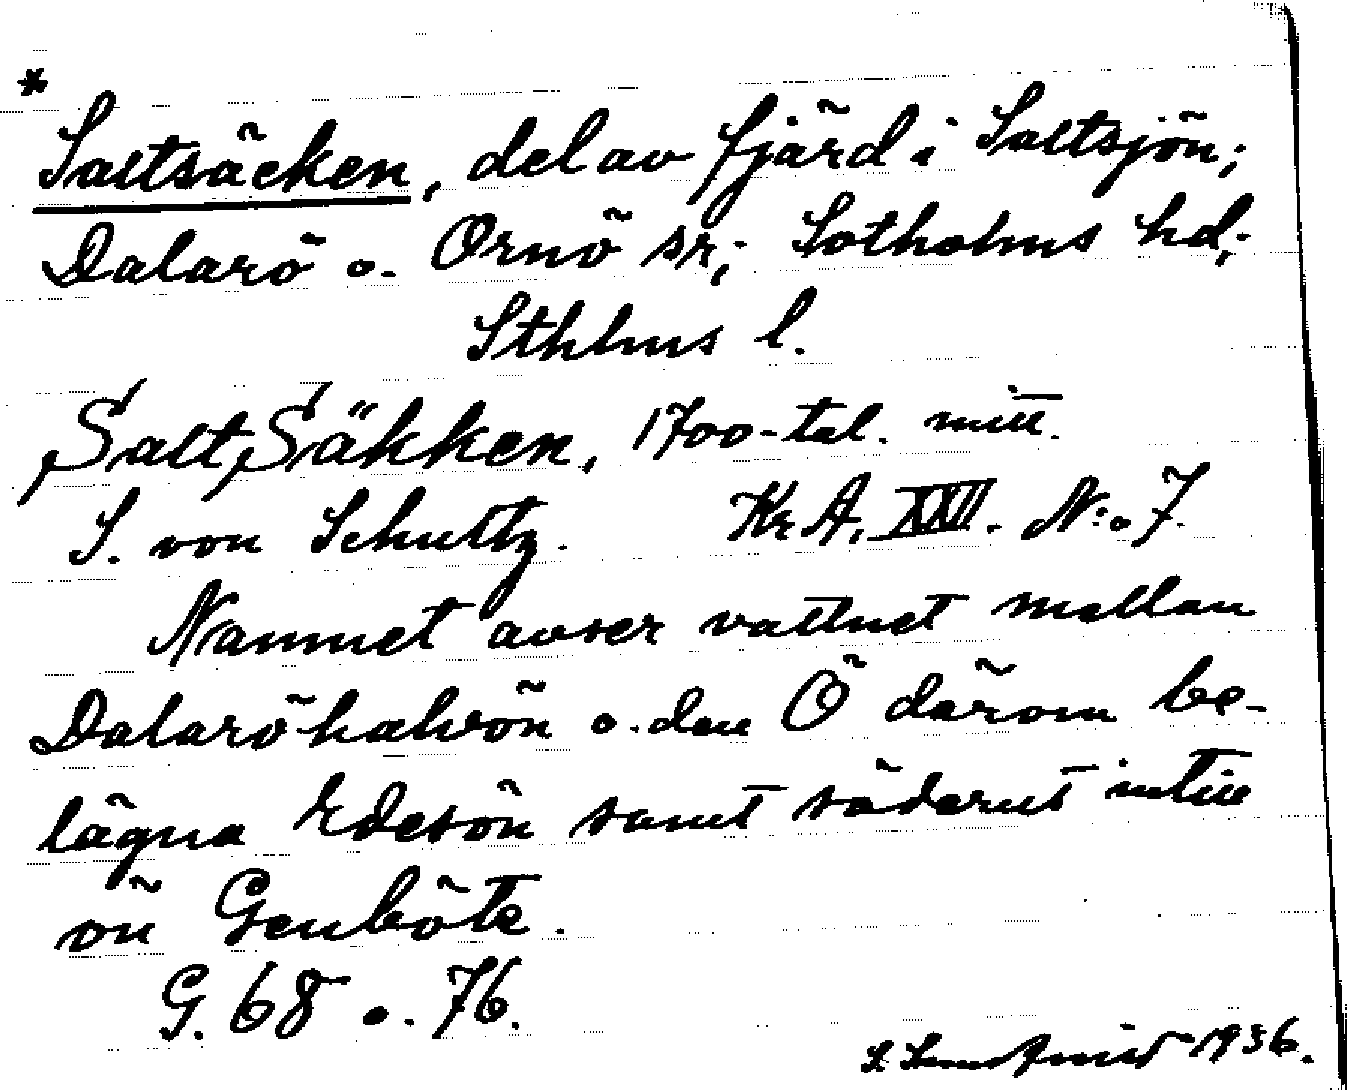 *
Saltsäcken, del av fjärd i Saltsjön;
Dalarö o. Ornö sr; Sotholms hd;
Sthlms l.
"Salt Säkken, 1700-tal. mitt.
S. von Schultz. Kr A, XXII. N:o 7.
Namnet avser vattnet mellan
Dalaröhalvön o. den Ö därom be-
lägna Edesön samt söderut intill
ön Genböte.
G. 68 o. 76.
1936.